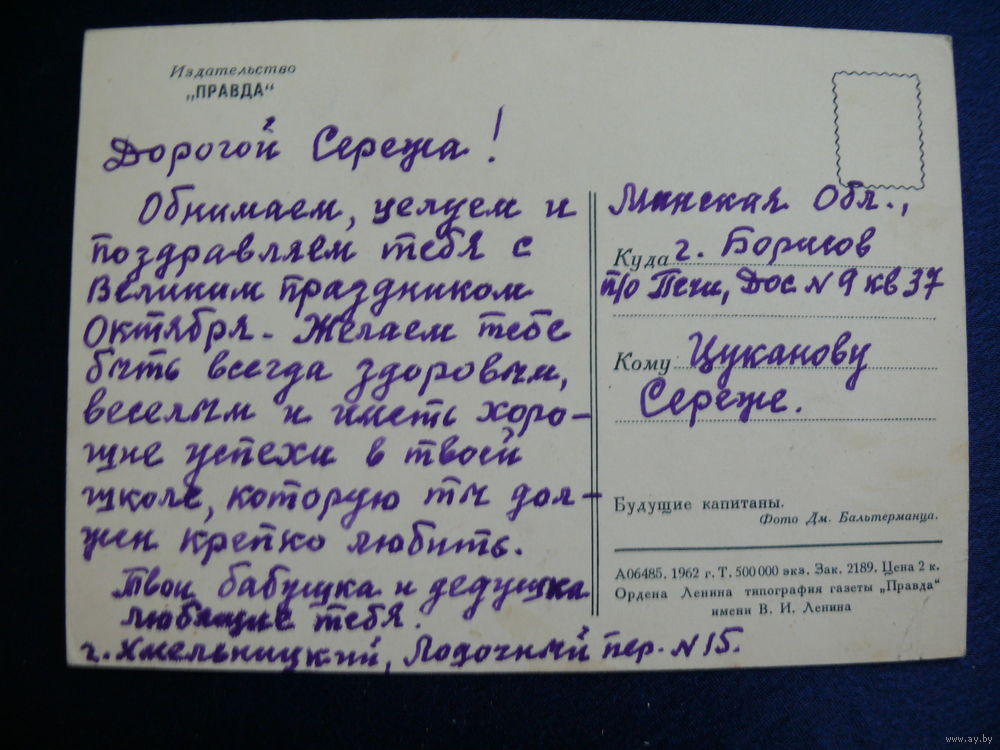 Издательство
„ПРАВДА“
Дорогой Сережа!
Обнимаем, целуем и
поздравляем тебя с
Великим праздником
Октября. Желаем тебе
быть всегда здоровым,
веселым и иметь хоро-
шие успехи в твоей
школе, которую ты дол-
жен крепко любить.
Твои бабушка и дедушка
любящие тебя.
г. Хмельницкий, Лодочный пер. N 15.
Минская Обл.,
Куда г. Борисов
п/о Печи, Дос N 9 кв 37
Кому Цуканову
Сереже.
Будущие капитаны.
Фото Дм. Бальтерманца.
А06485. 1962 г. Т. 500 000 экз. Зак. 2189. Цена 2 к.
Ордена Ленина типография газеты „Правда“
имени В. И. Ленина
www.ay.by